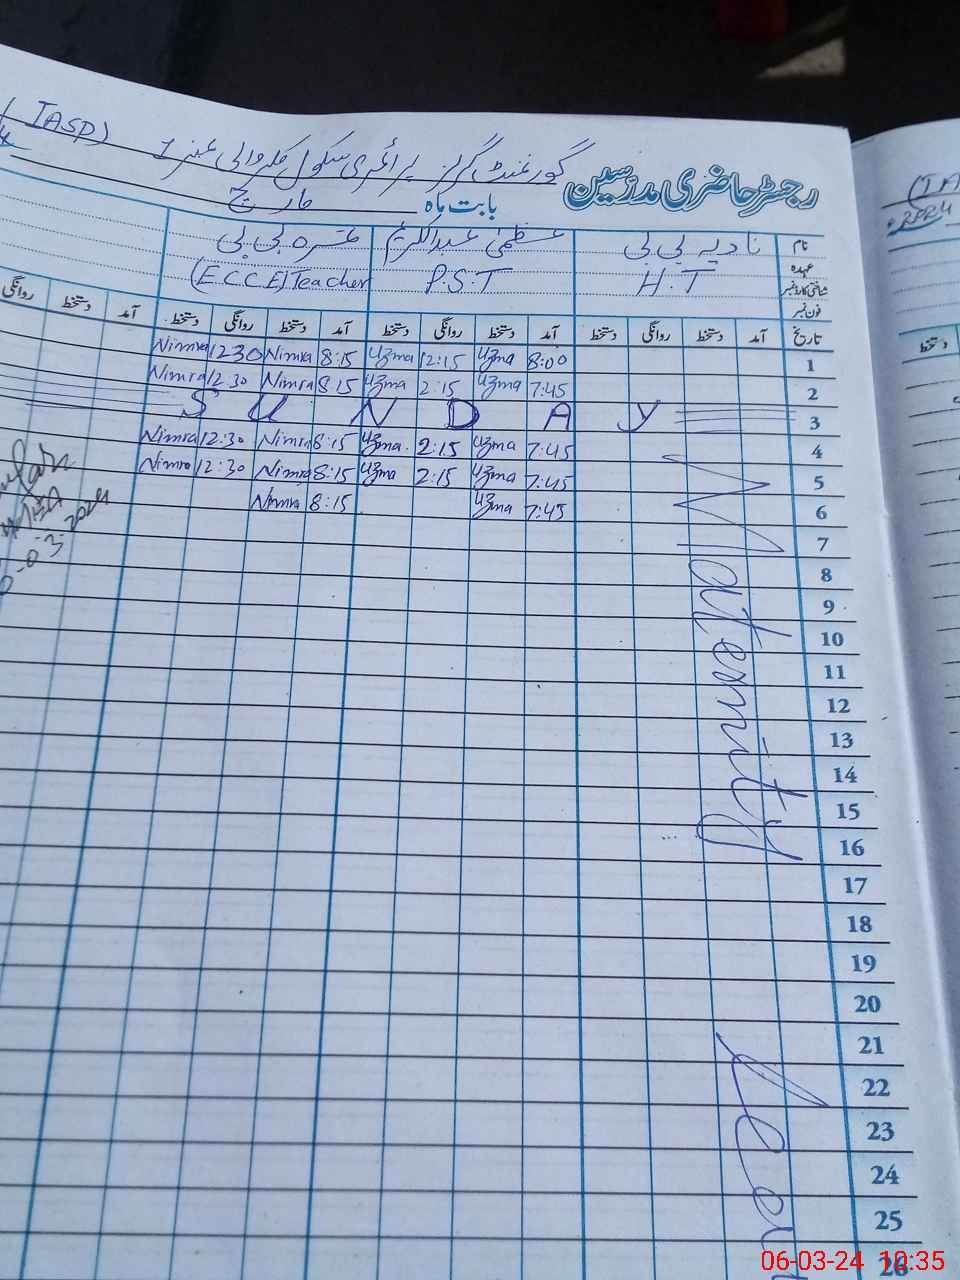 رجسٹر حاضری مدرسین گورنمنٹ گرلز پرائمری سکول (IASP)
بابت ماہ مارچ
نام نادیہ بی بی عظمیٰ عبدالکریم بی بی
عہدہ H.T P.S.T (ECCE) Teacher
شناختی کارڈ نمبر
فون نمبر
تاریخ آمد دستخط روانگی دستخط آمد دستخط روانگی دستخط آمد دستخط روانگی دستخط آمد دستخط روانگی
1 8:00 Uzma 12:15 Uzma 8:15 Nimra 12 30 Nimra
2 7:45 Uzma 2:15 Uzma 8:15 Nimra 12 30 Nimra
3 SUNDAY
4 7:45 Uzma 2:15 Uzma 8:15 Nimra 12:30 Nimra
5 7:45 Uzma 2:15 Uzma 8:15 Nimra 12:30 Nimra
6 7:45 Uzma 8:15 Nimra
7
8
9
10
11
12
13
14
15
16
17
18
19
20
21
22
23
24
25
26
Maternity
دستخط
06-03-24 10:35